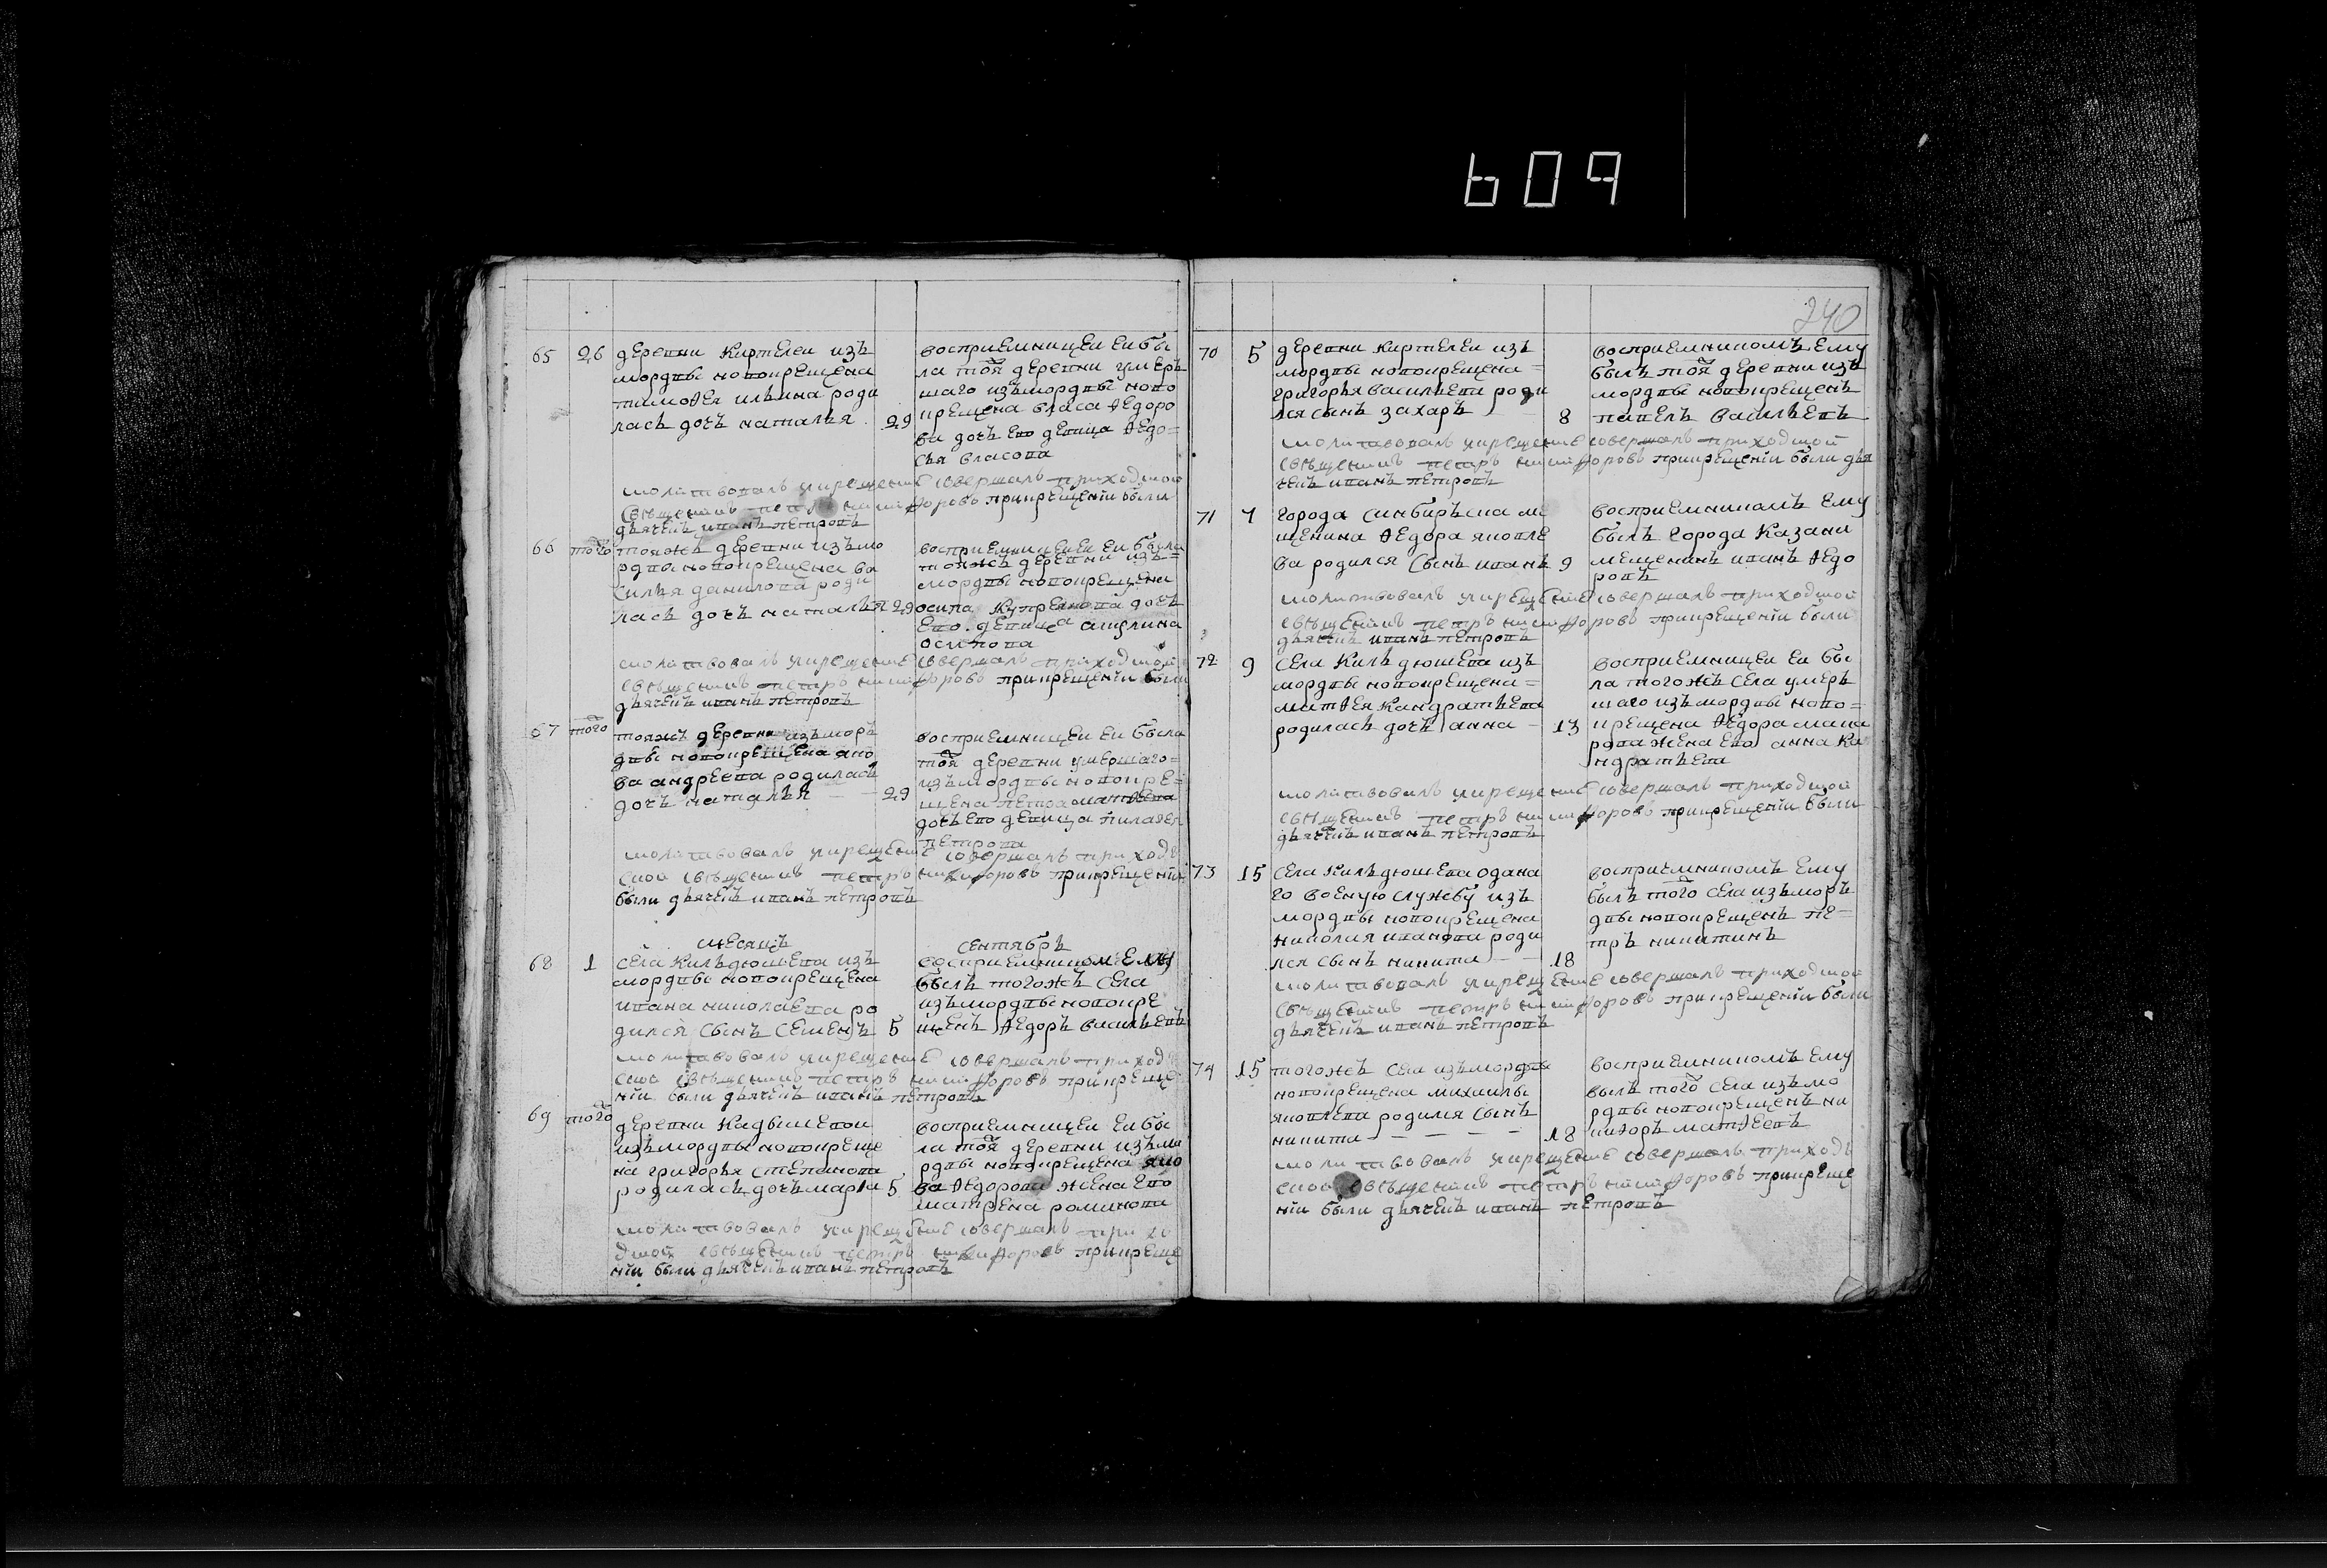 609
240
65 26 деревни Картелеи изъ
мордвы новокрещена
тимоѳея ильина роди
лась дочь наталья 29
восприемницеи еи бы
ла тоя деревни умерь
шаго изъ мордвы ново
крещена власа ѳедоро
ва дочь ево девица ѳедо=
сья власова
молитвовалъ икрещение совершалъ приходской
священникъ петръ никифоровъ прикрещении были
дьячекъ иванъ петровъ
66 того тояжъ деревни изъ мо
рдвы новокрещена ва
силья данилова роди
лась дочь наталья 29
восприемницеи еи была
тояжъ деревни изъ=
мордвы новокрещена
осипа куприянова дочь
ево девица акулина
осипова
молитвовалъ икрещение совершалъ приходской
священникъ петръ никифоровъ прикрещении были
дьячекъ иванъ петровъ
67 того тояжъ деревни изъ мор
двы новокрещена яко
ва андреева родилась
дочь наталья 29
восприемницеи еи была
тоя деревни умершаго=
изъ мордвы новокре=
щена петра матвеева
дочь ево девица пилагея
петрова
молитвовалъ икрещение совершалъ приход
ской священникъ петръ никифоровъ прикрещении
были дьячекъ иванъ петровъ
месяцъ сентябрь
68 1 села Кильдюшева изъ
мордвы новокрещена
ивана николаева ро
дился сынъ семенъ 5
восприемникомъ ему
былъ тогожъ села
изъ мордвы новокре
щенъ ѳедоръ васильевъ
молитвовалъ икрещение совершалъ приход
ской священникъ петръ никифоровъ прикреще
нии были дьячекъ иванъ петровъ
69 того деревни Кадышевои
изъ мордвы новокреще
на григорья степанова
родилась дочь марѳа 5
восприемницеи еи бы
ла тоя деревни изъ мо
рдвы новокрещена яко
ва ѳедорова жена ево
матрена романова
молитвовалъ икрещение совершалъ прихо
дской священникъ петръ никифоровъ прикреще
нии были дьячекъ иванъ петровъ
70 5 деревни картелеи изъ
мордвы новокрещена=
григорья васильева роди
лся сынъ захаръ 8
восприемникомъ ему
былъ тоя деревни изъ
мордвы новокрещенъ
павелъ васильевъ
молитвовалъ икрещение совершалъ приходской
священникъ петръ никифоровъ прикрещении были дья
чекъ иванъ петровъ
71 7 города синбирьска ме
щенина ѳедора яковле
ва родился сынъ иванъ 9
восприемникомъ ему
былъ города Казани
мещенинъ иванъ ѳедо
ровъ
молитвовалъ икрещение совершалъ приходской
священникъ петръ никифоровъ прикрещении были
дьячекъ иванъ петровъ
72 9 села Кильдюшева изъ
мордвы новокрещена=
матѳея Кандратьева
родилась дочь анна 13
восприемницеи еи бы
ла тогожъ села умерь
шаго изъ мордвы ново=
крещена ѳедора мака
рова жена ево анна Ка
ндратьева
молитвовалъ икрещение совершалъ приходской
священникъ петръ никифоровъ прикрещении были
дьячекъ иванъ петровъ
73 15 села Кильдюшева одана
го военую службу изъ
мордвы новокрещена
николая иванова роди
лся сынъ никита 18
восприемникомъ ему
былъ того села изъ морь
двы новокрещенъ пе=
тръ никитинъ
молитвовалъ икрещение совершалъ приходской
священникъ петръ никифоровъ прикрещении были
дьячекъ иванъ петровъ
74 15 тогожъ села изъ мордвы
новокрещена михаилы
яковлева родился сынъ
никита 18
восприемникомъ ему
былъ того села изъ мо
рдвы новокрещенъ ни
киѳоръ матѳеевъ
молитвовалъ икрещение совершалъ приход
ской священникъ петръ никифоровъ прикреще
нии были дьячекъ иванъ петровъ